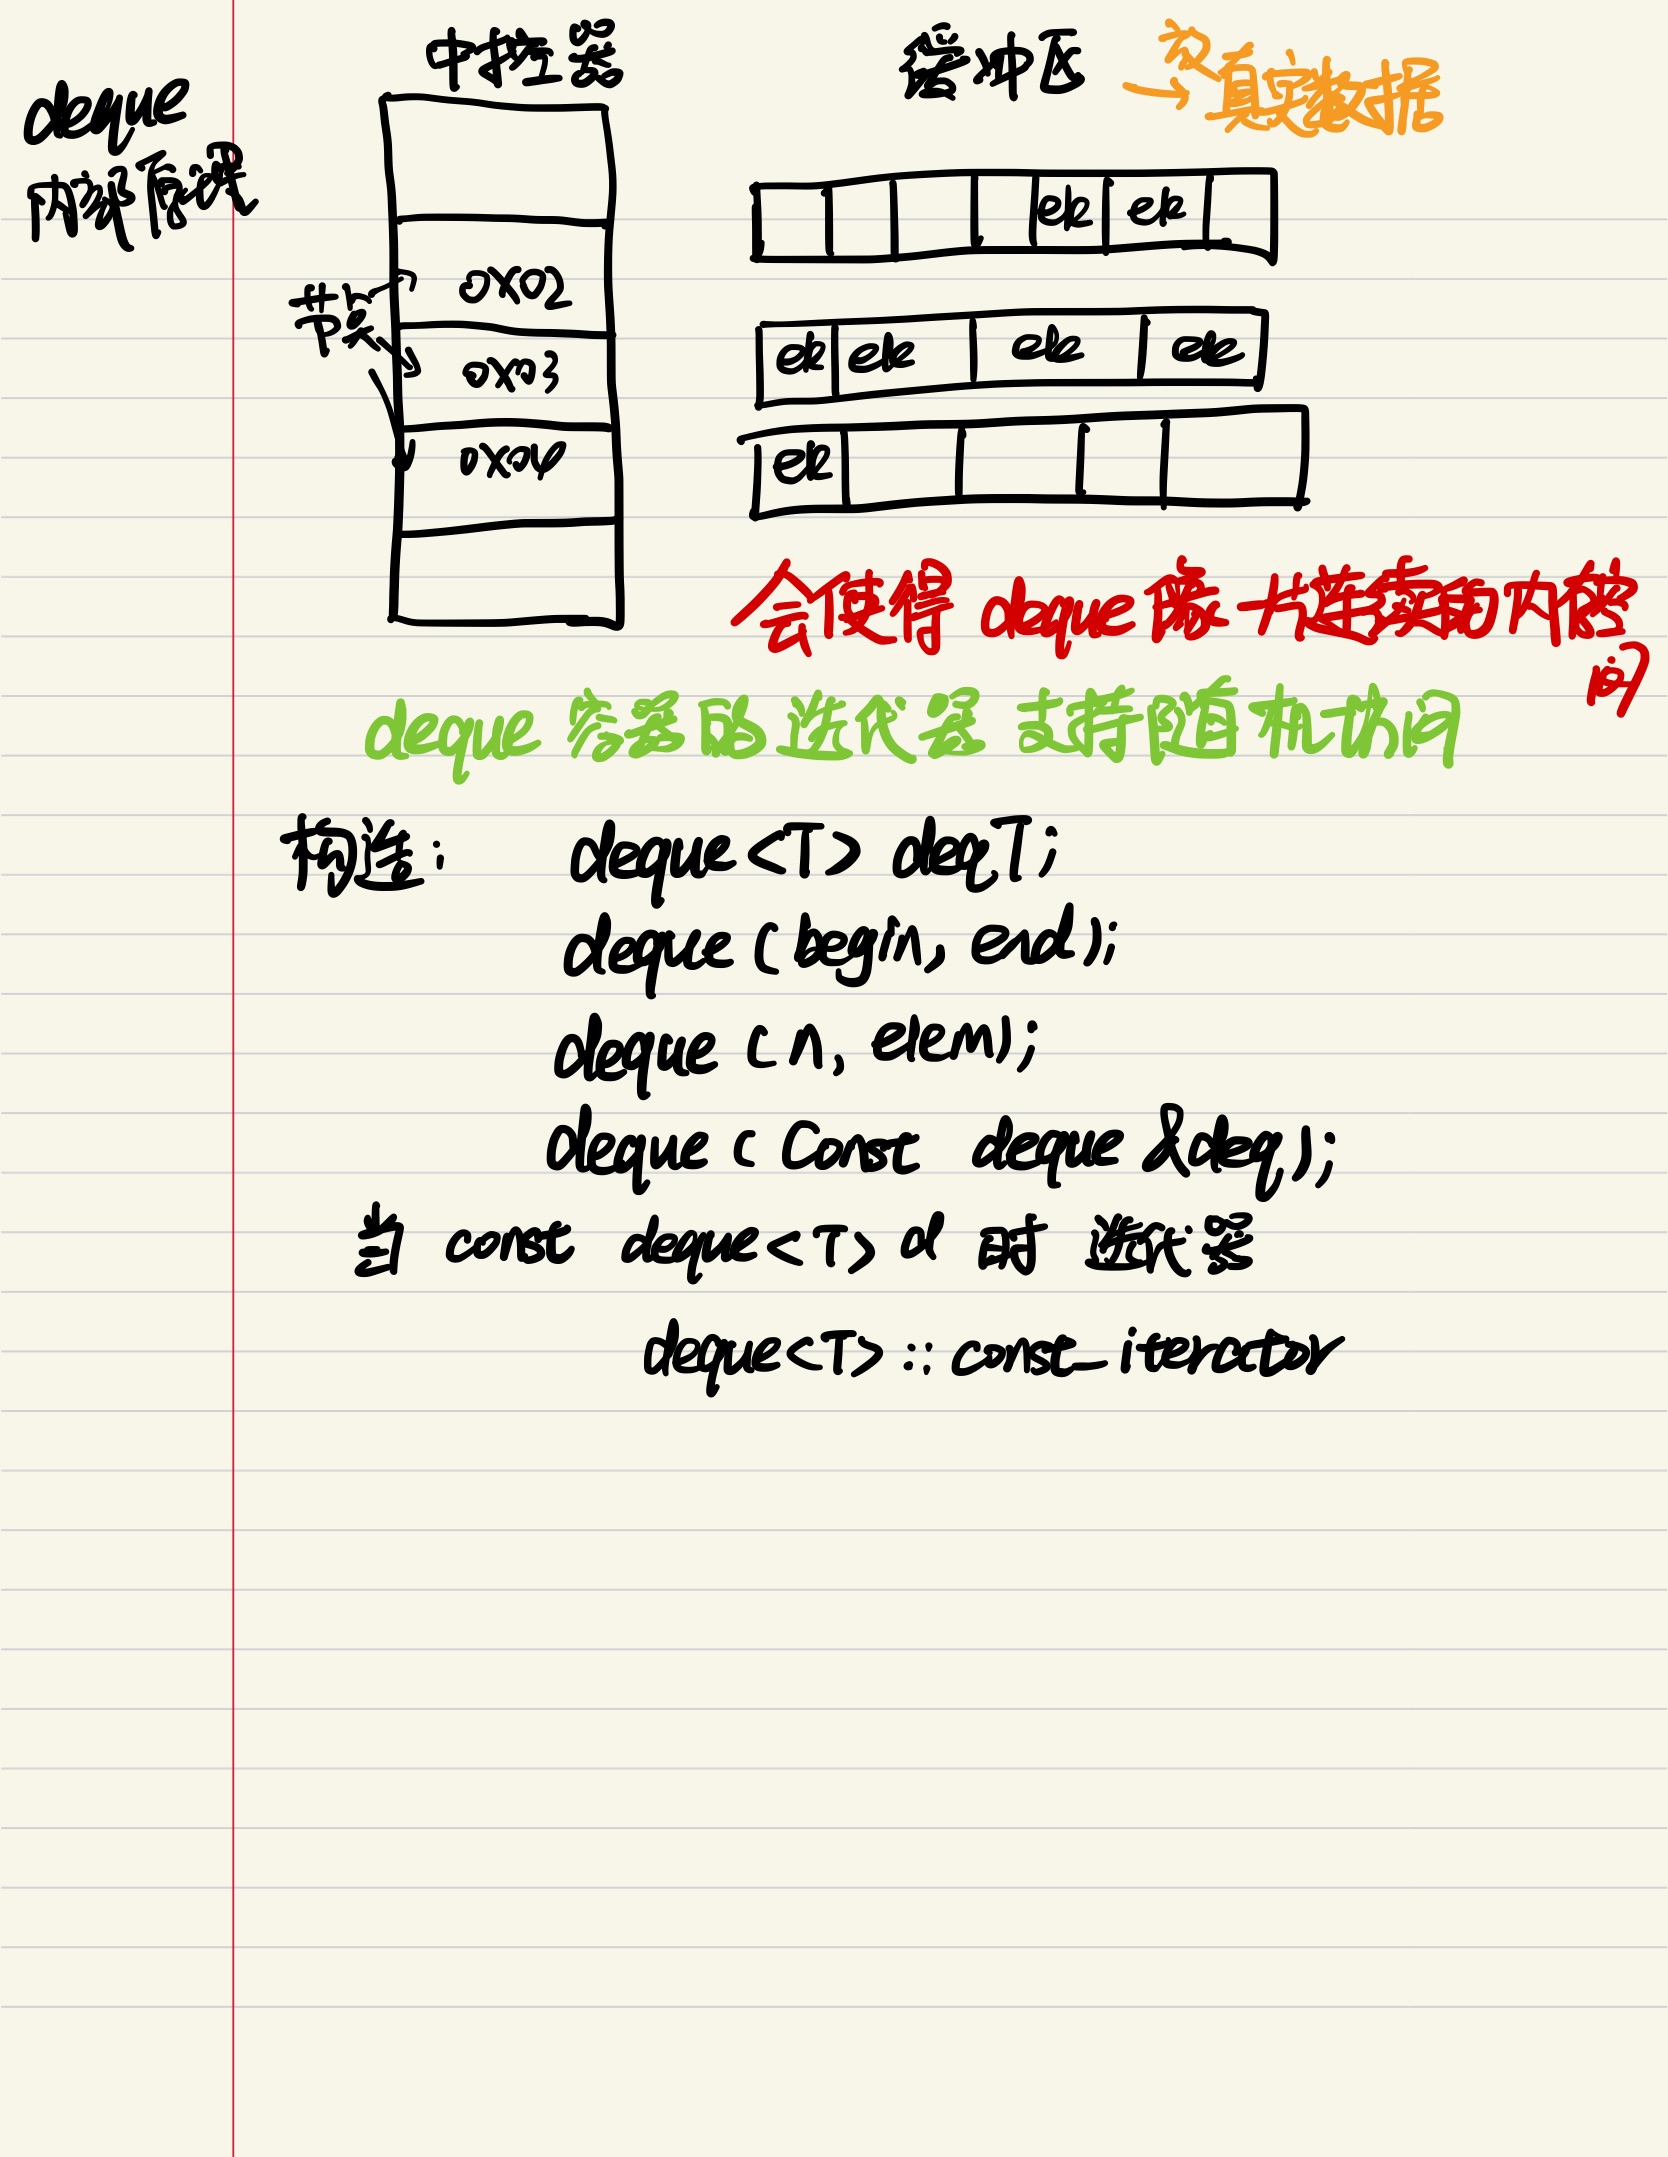 deque
内部原理
中控器
缓冲区
放
→真实数据
ele ele
节点
0x02
ele ele ele ele
0x03
ele
0x04
会使得 deque 像一片连续的内存空
间
deque 容器的迭代器 支持随机访问
构造: deque<T> deqT;
deque (begin, end);
deque (n, elem);
deque (const deque &deq);
当 const deque<T> d 时 迭代器
deque<T>::const_iterator